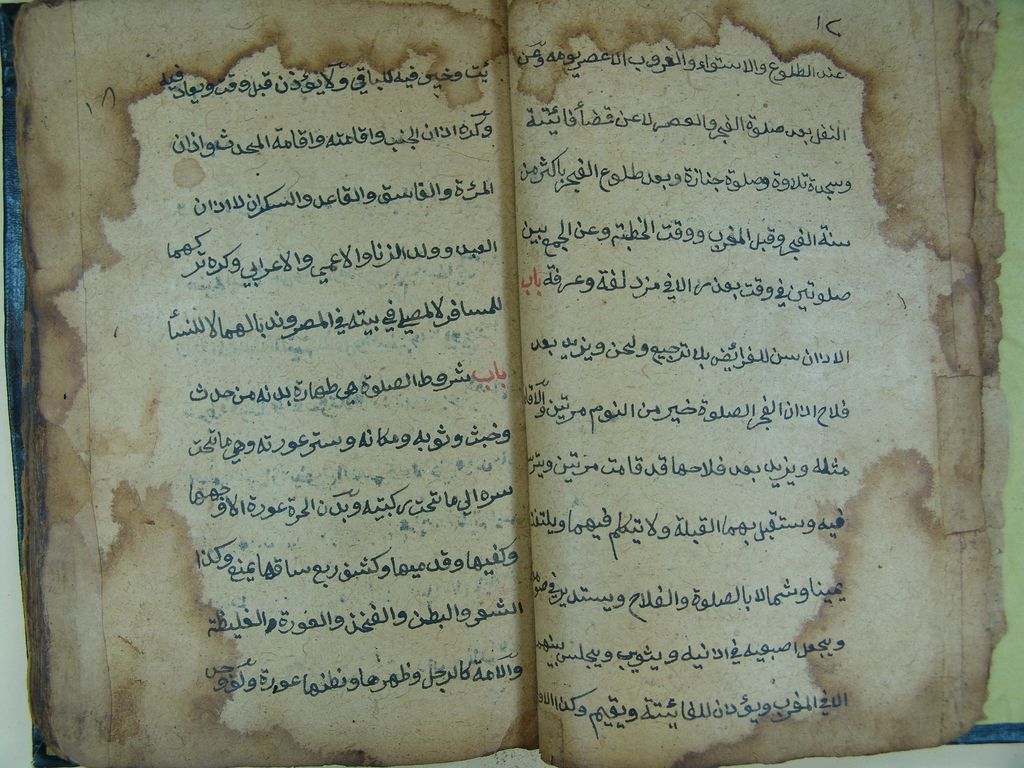 ١٢
عند الطلوع والاستواء والغروب الا عصر يومه وعن
النفل بعد صلوة الفجر والعصر لا عن قضأ فائتة
وسجدة تلاوة وصلوة جنازة وبعد طلوع الفجر باكثر من
سنة الفجر وقبل المغرب ووقت الخطبة وعن الجمع بين
صلوتين في وقت بعذر الا في مزدلفة وعرفة باب
الاذان سن للفرائض بلا ترجيع ولحن ويزيد بعد
فلاح اذان الفجر الصلوة خير من النوم مرتين والاقا
مثله ويزيد بعد فلاحها قد قامت مرتين ويترس
فيه وستقبل بهما القبلة ولا يتكلم فيهما ويلتفت
يمينا وشمالا بالصلوة والفلاح ويستدير في
ويجعل اصبعيه في اذنيه ويثوب ويجلس بينهما
الا في المغرب ويؤذن للفائتة ويقيم وكذا الاو
١٨
ئت وخير فيه للباقي ولا يؤذن قبل وقت ويعاد فيه
وكره اذان الجنب واقامته واقامة المحدث واذان
المرءة والفاسق والقاعد والسكران لا اذان
العبد وولد الزنا والاعمي والاعرابي وكره تركهما
للمسافر لا لمصلي في بيته في المصر وندبا لهما لا للنسأ
باب شروط الصلوة هي طهارة بدنه من حدث
وخبث وثوبه ومكانه وستر عورته وهي ما تحت
سره الي ما تحت ركبتيه وبدن الحرة عورة الا وجهها
وكفيها وقدميها وكشف ربع ساقها يمنع وكذا
الشعر والبطن والفخذ والعورة الغليظة
والامة كالرجل وظهرها وبطنها عورة ولو وجد